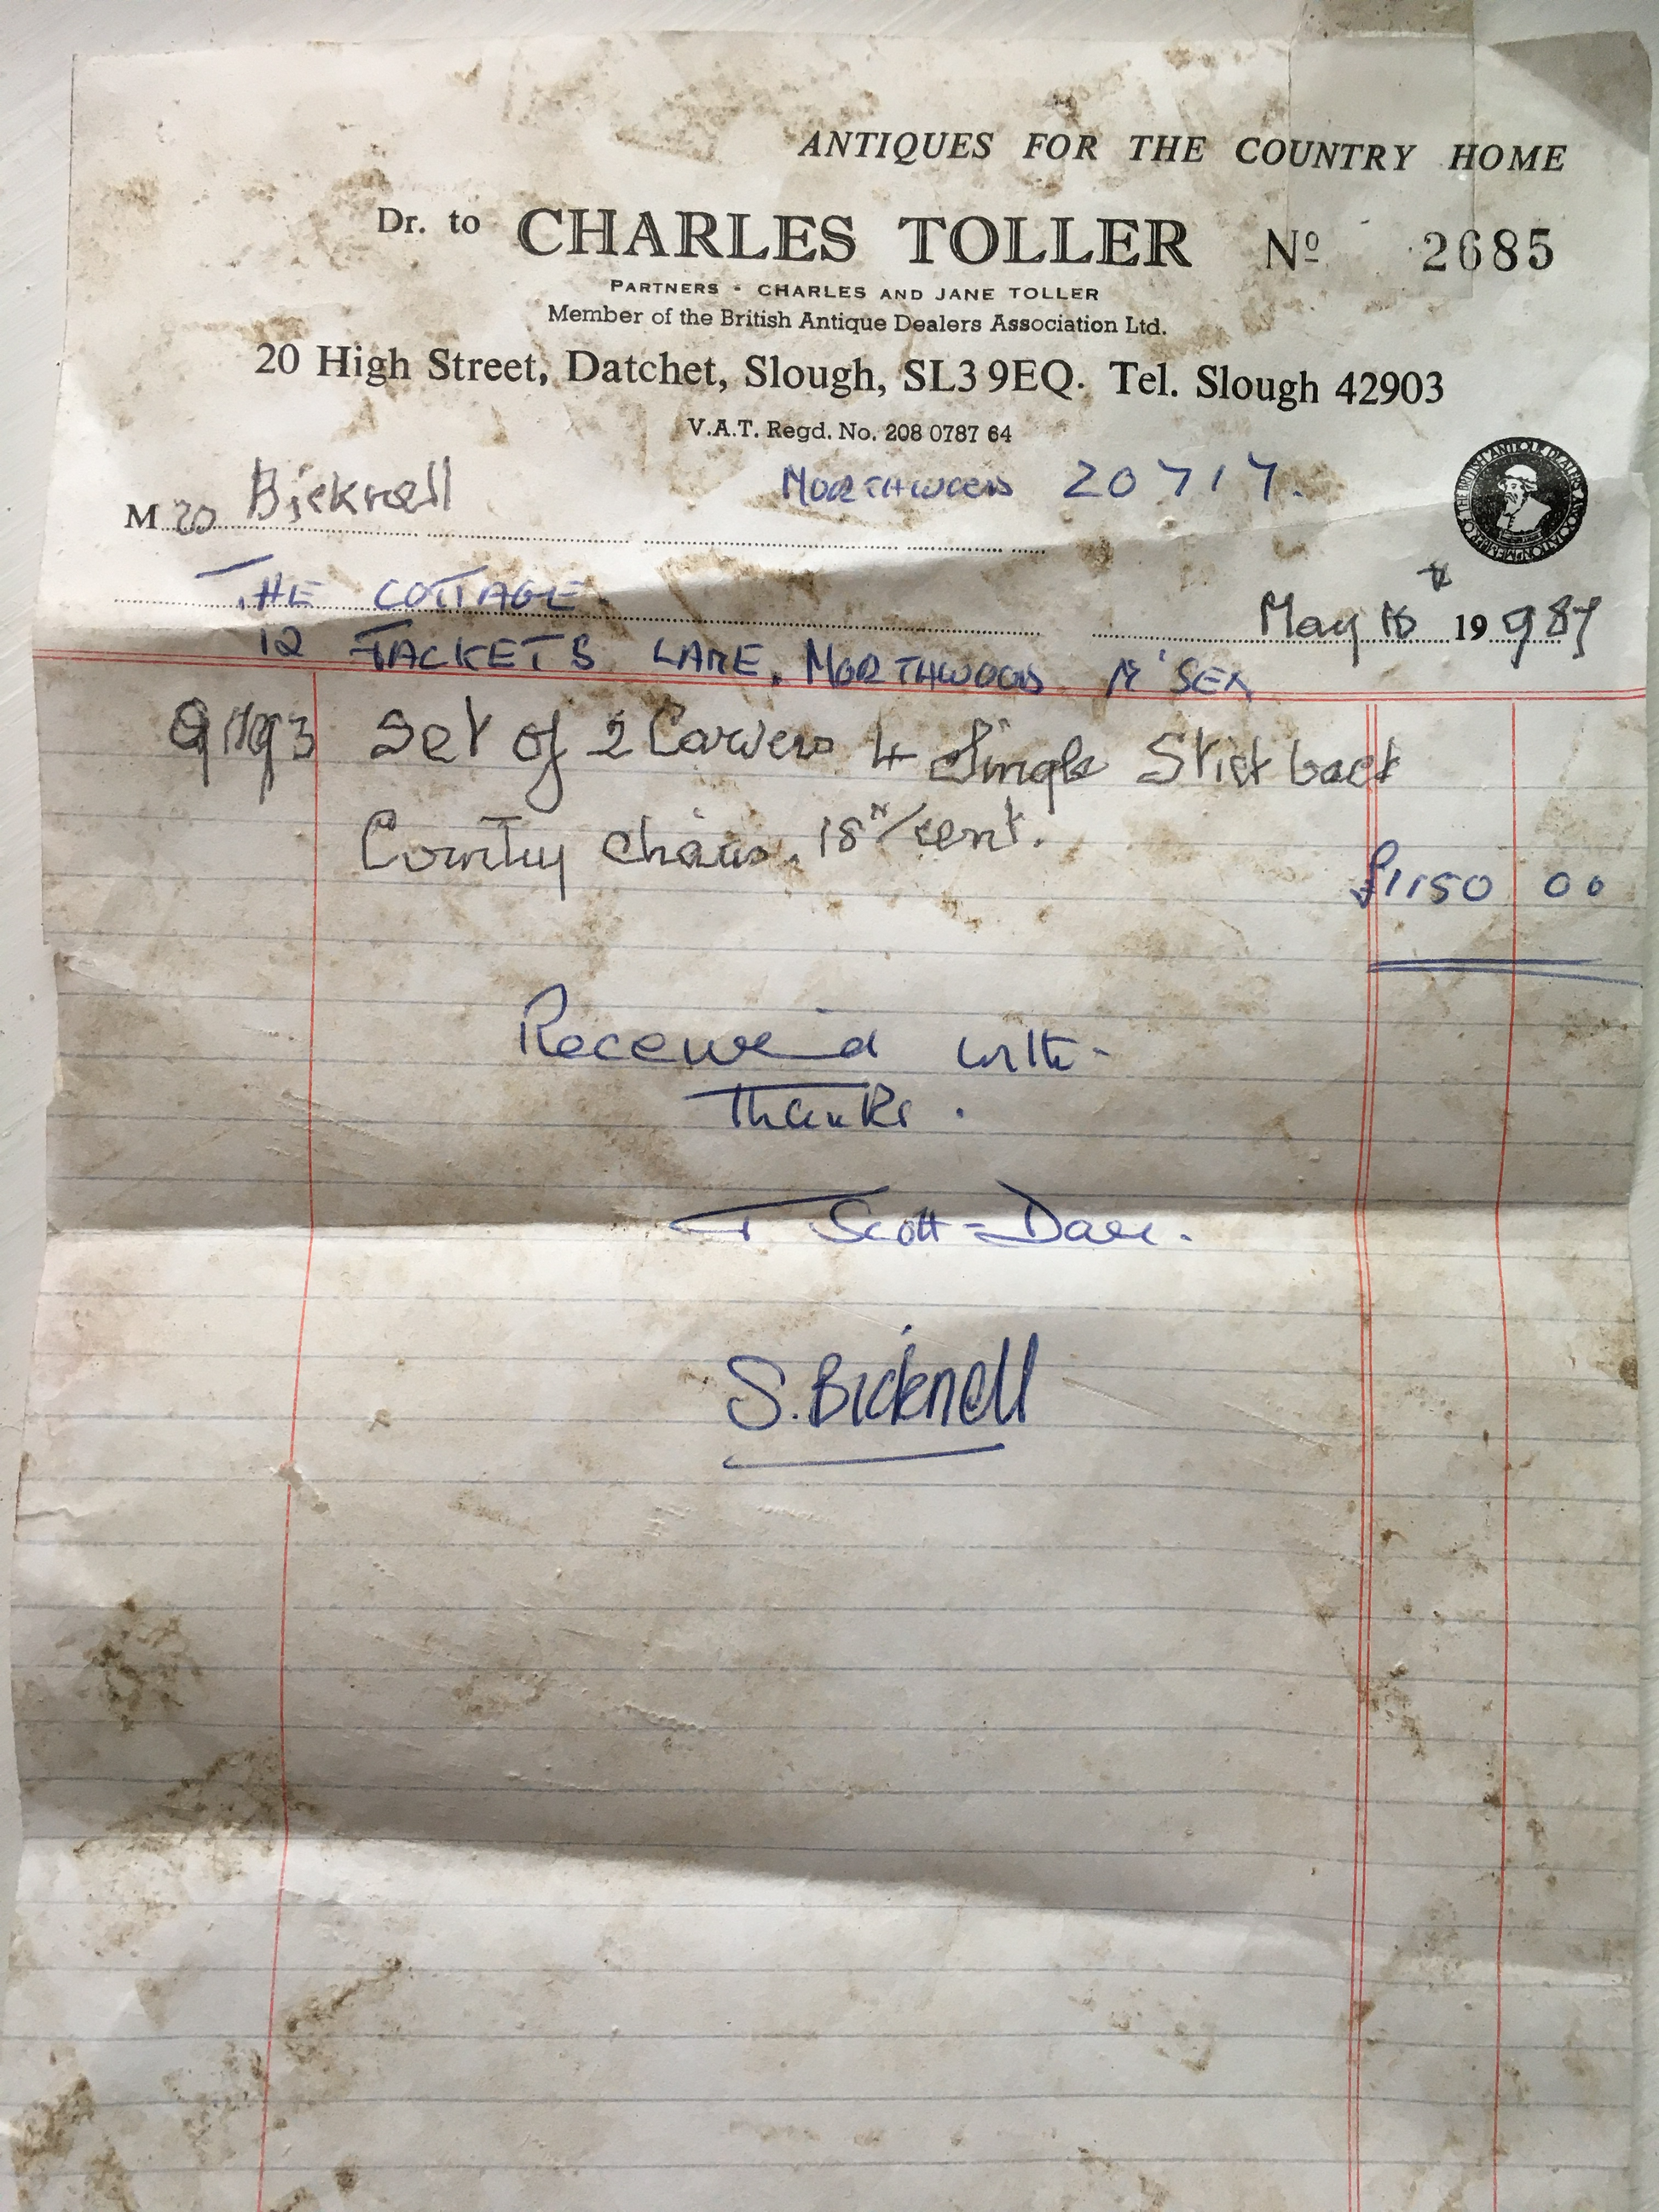 ANTIQUES FOR THE COUNTRY HOME
Dr. to CHARLES TOLLER Nº 2685
PARTNERS - CHARLES AND JANE TOLLER
Member of the British Antique Dealers Association Ltd.
20 High Street, Datchet, Slough, SL3 9EQ. Tel. Slough 42903
V.A.T. Regd. No. 208 0787 64
M Bicknell NORTHWOOD 20717.
THE COTTAGE
May 19 987
12 JACKETS LANE, NORTHWOOD M'SEX
Set of 2 Carvers 4 Single Stick back
Country chairs, 18th/cent.
£1150 00
Received with
Thanks.
Scott-
S. Bicknell